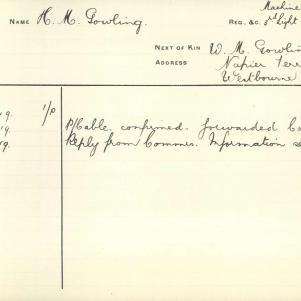 Machine
NAME H. M. Gowling. REG. &C. 3rd Light
NEXT OF KIN W. M. Gowlin
ADDRESS Napier Terr
Westbourne
9. 1/P P/Cable. confirmed. forwarded Co
19. Reply from Commrs. Information s
19.